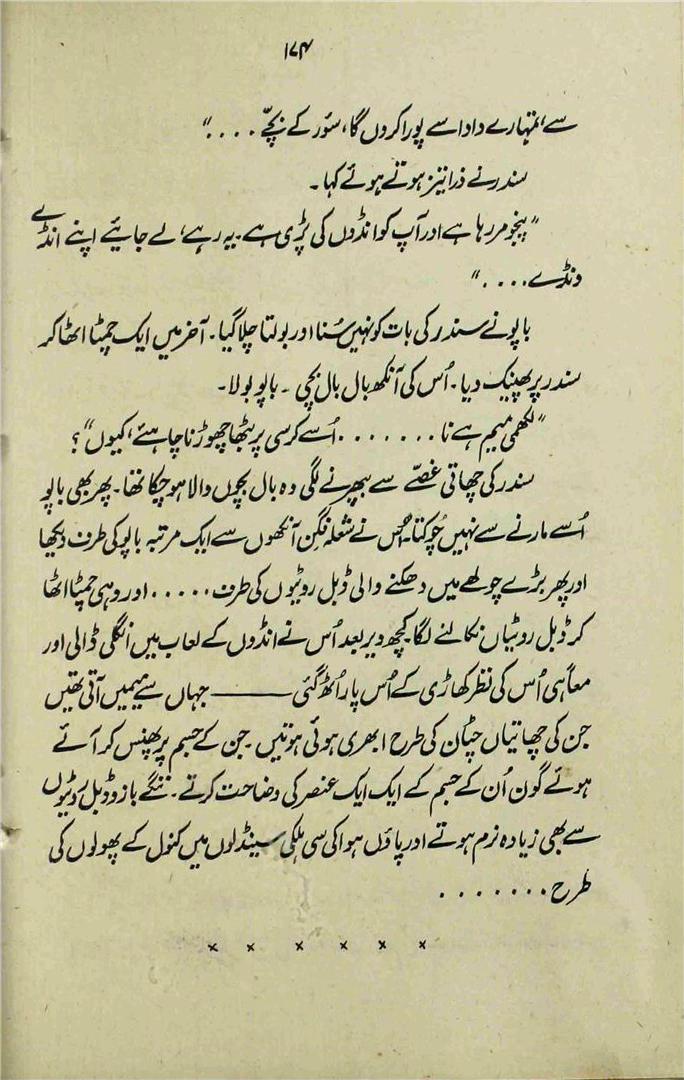 ۱۷۴
سے، تمہارے دادا سے پورا کروں گا، سؤر کے بچّے . . . . "
سندر نے ذرا تیز ہوتے ہوئے کہا۔
"پنجو مر رہا ہے اور آپ کو انڈوں کی پڑی ہے۔ یہ رہے، لے جایئے اپنے انڈے
ونڈے . . . . "
باپو نے سندر کی بات کو نہیں سُنا اور بولتا چلا گیا۔ آخر میں ایک چمٹا اٹھا کر
سندر پر پھینک دیا۔ اُس کی آنکھ بال بال بچی ۔ باپو بولا۔
"لکھمی میم ہے نا . . . . . . . اُسے کرسی پر بٹھا چھوڑنا چاہیئے، کیوں"؟
سندر کی چھاتی غصّے سے بھرنے لگی وہ بال بچوں والا ہو چکا تھا۔ پھر بھی باپو
اُسے مارنے سے نہیں چُوکتا۔ اُس نے شعلہ فگن آنکھوں سے ایک مرتبہ باپو کی طرف دیکھا
اور پھر بڑے چولھے میں دھکنے والی ڈبل روٹیوں کی طرف . . . . . اور وہی چمٹا اٹھا
کر ڈبل روٹیاں نکالنے لگا۔ کچھ دیر بعد اُس نے انڈوں کے لعاب میں انگلی ڈالی اور
معاً ہی اُس کی نظر کھاڑی کے اُس پار اُٹھ گئی ——— جہاں سے میمیں آتی تھیں
جن کی چھاتیاں چٹان کی طرح ابھری ہوئی ہوتیں۔ جن کے جسم پر پھنس کر آئے
ہوئے گون اُن کے جسم کے ایک ایک عنصر کی وضاحت کرتے۔ ننگے بازو ڈبل روٹیوں
سے بھی زیادہ نرم ہوتے اور پاؤں ہوا کی سی ہلکی سینڈلوں میں کنول کے پھولوں کی
طرح . . . . . . .
× × × × × ×